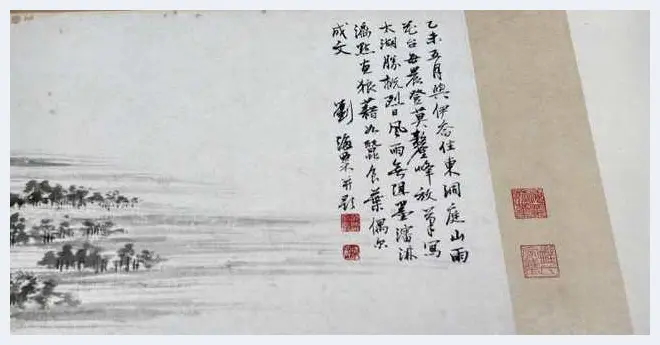 乙未五月與伊喬住東洞庭山雨
花台每晨登莫釐峰放筆寫
太湖勝概烈日風雨無阻墨瀋淋
漓點畫狼藉如蠶食葉偶尔
成文 劉海粟并題